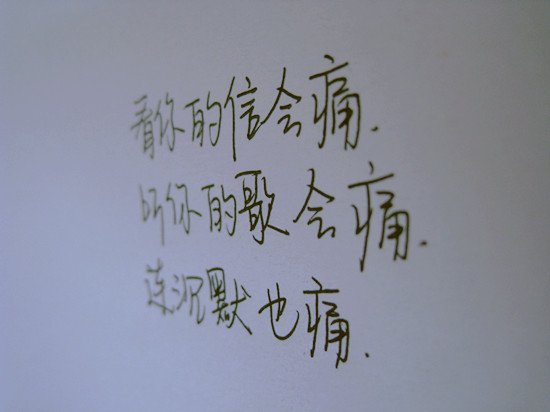 看你的信会痛.
听你的歌会痛.
连沉默也痛.